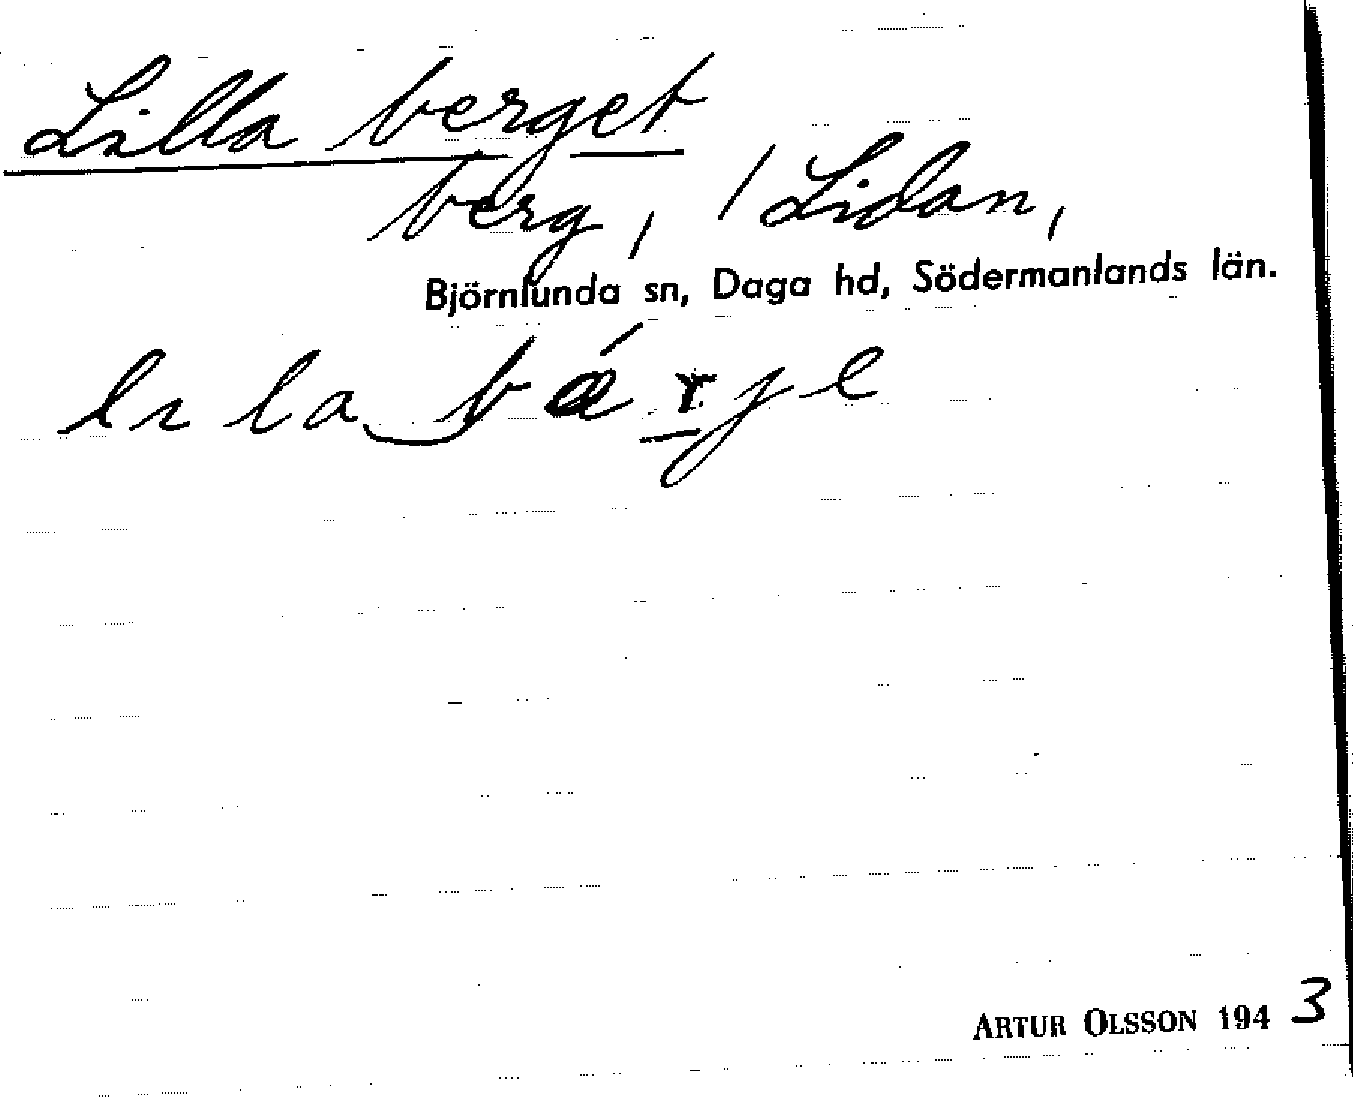 Lilla berget
berg, / Lidan,
Björnlunda sn, Daga hd, Södermanlands län.
lila bǽrje
ARTUR OLSSON 1943